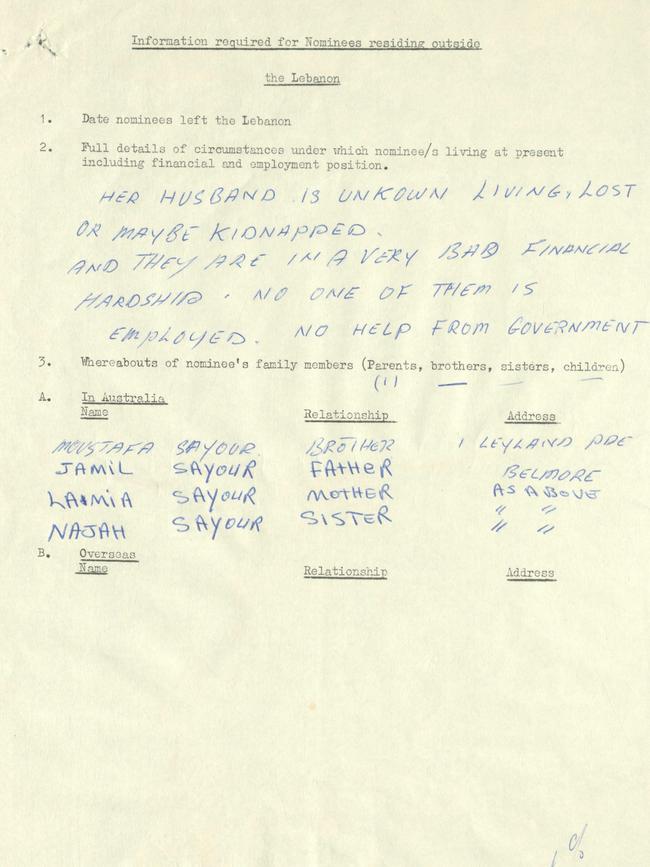 Information required for Nominees residing outside
the Lebanon
1. Date nominees left the Lebanon
2. Full details of circumstances under which nominee/s living at present
including financial and employment position.
HER HUSBAND IS UNKOWN LIVING, LOST
OR MAYBE KIDNAPPED.
AND THEY ARE IN A VERY BAD FINANCIAL
HARDSHIP. NO ONE OF THEM IS
EMPLOYED. NO HELP FROM GOVERNMENT
3. Whereabouts of nominee's family members (Parents, brothers, sisters, children)
(1) — — —
A. In Australia
Name Relationship Address
MOUSTAFA SAYOUR BROTHER 1 LEYLAND PDE
JAMIL SAYOUR FATHER BELMORE
LAMIA SAYOUR MOTHER AS ABOVE
NAJAH SAYOUR SISTER " "
" "
B. Overseas
Name Relationship Address